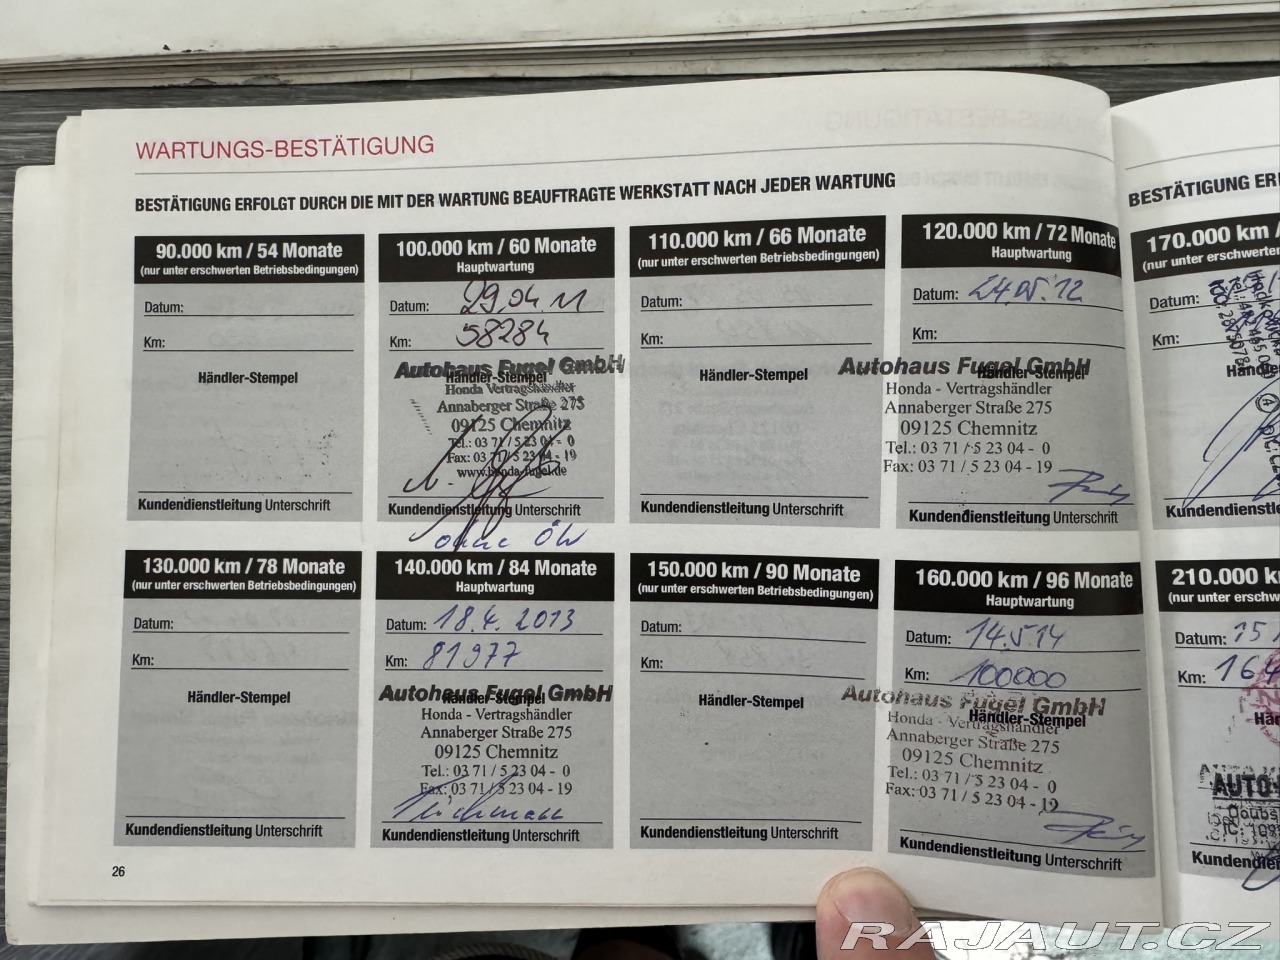 WARTUNGS-BESTÄTIGUNG
BESTÄTIGUNG ERFOLGT DURCH DIE MIT DER WARTUNG BEAUFTRAGTE WERKSTATT NACH JEDER WARTUNG
90.000 km / 54 Monate
(nur unter erschwerten Betriebsbedingungen)
Datum:
Km:
Händler-Stempel
Kundendienstleitung Unterschrift
100.000 km / 60 Monate
Hauptwartung
Datum: 29.04.11
Km: 58284
Autohaus Fugel GmbH
Händler-Stempel
Honda Vertragshändler
Annaberger Straße 275
09125 Chemnitz
Tel.: 03 71 / 5 23 04 - 0
Fax: 03 71 / 5 23 04 - 19
www.honda-fugel.de
Kundendienstleitung Unterschrift
ohne ÖW
110.000 km / 66 Monate
(nur unter erschwerten Betriebsbedingungen)
Datum:
Km:
Händler-Stempel
Kundendienstleitung Unterschrift
120.000 km / 72 Monate
Hauptwartung
Datum: 24.05.12
Km:
Autohaus Fugel GmbH
Händler-Stempel
Honda - Vertragshändler
Annaberger Straße 275
09125 Chemnitz
Tel.: 03 71 / 5 23 04 - 0
Fax: 03 71 / 5 23 04 - 19
Kundendienstleitung Unterschrift
130.000 km / 78 Monate
(nur unter erschwerten Betriebsbedingungen)
Datum:
Km:
Händler-Stempel
Kundendienstleitung Unterschrift
140.000 km / 84 Monate
Hauptwartung
Datum: 18.4.2013
Km: 81977
Autohaus Fugel GmbH
Händler-Stempel
Honda - Vertragshändler
Annaberger Straße 275
09125 Chemnitz
Tel.: 03 71 / 5 23 04 - 0
Fax: 03 71 / 5 23 04 - 19
Kundendienstleitung Unterschrift
150.000 km / 90 Monate
(nur unter erschwerten Betriebsbedingungen)
Datum:
Km:
Händler-Stempel
Kundendienstleitung Unterschrift
160.000 km / 96 Monate
Hauptwartung
Datum: 14.5.14
Km: 100000
Autohaus Fugel GmbH
Händler-Stempel
Honda - Vertragshändler
Annaberger Straße 275
09125 Chemnitz
Tel.: 03 71 / 5 23 04 - 0
Fax: 03 71 / 5 23 04 - 19
Kundendienstleitung Unterschrift
26
BESTÄTIGUNG ER
170.000 km /
(nur unter erschwerten
Datum:
Km:
Händler
Kundendienstleitung
210.000 k
(nur unter erschw
Datum: 15
Km: 164
AUTO
Kundendie
RAJAUT.CZ